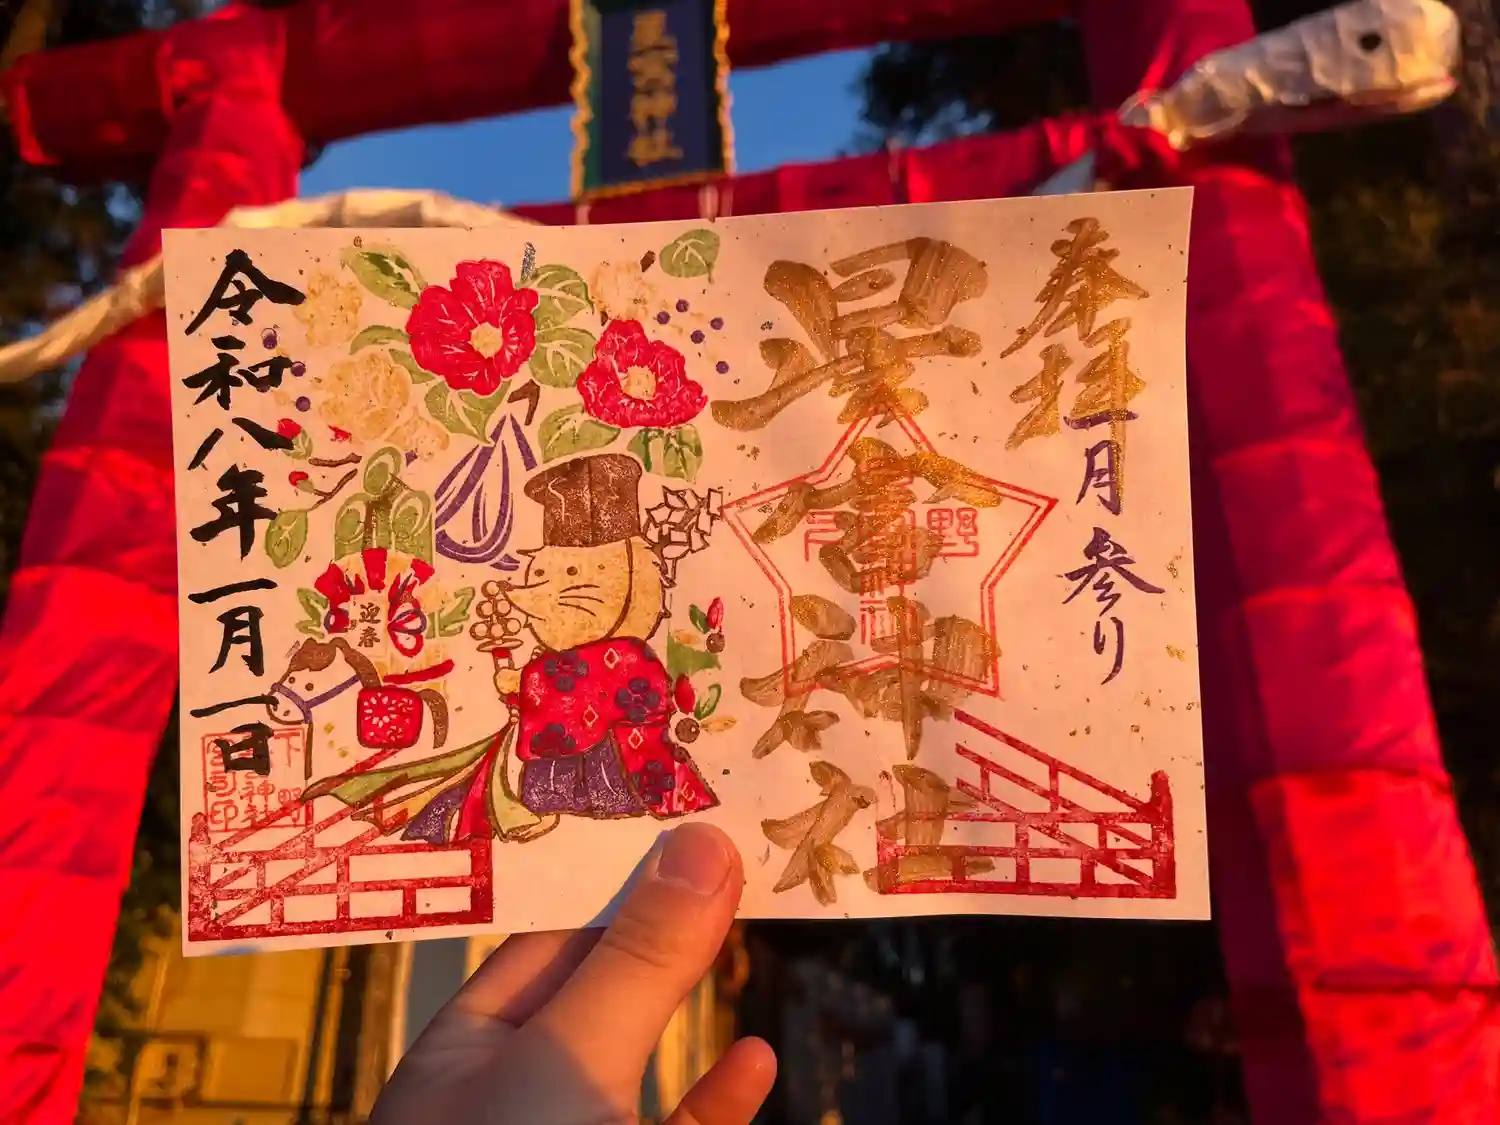 星宮神社
奉拝
一月参り
星宮神社
令和八年一月一日
迎春
下野
星宮神社
宮司印